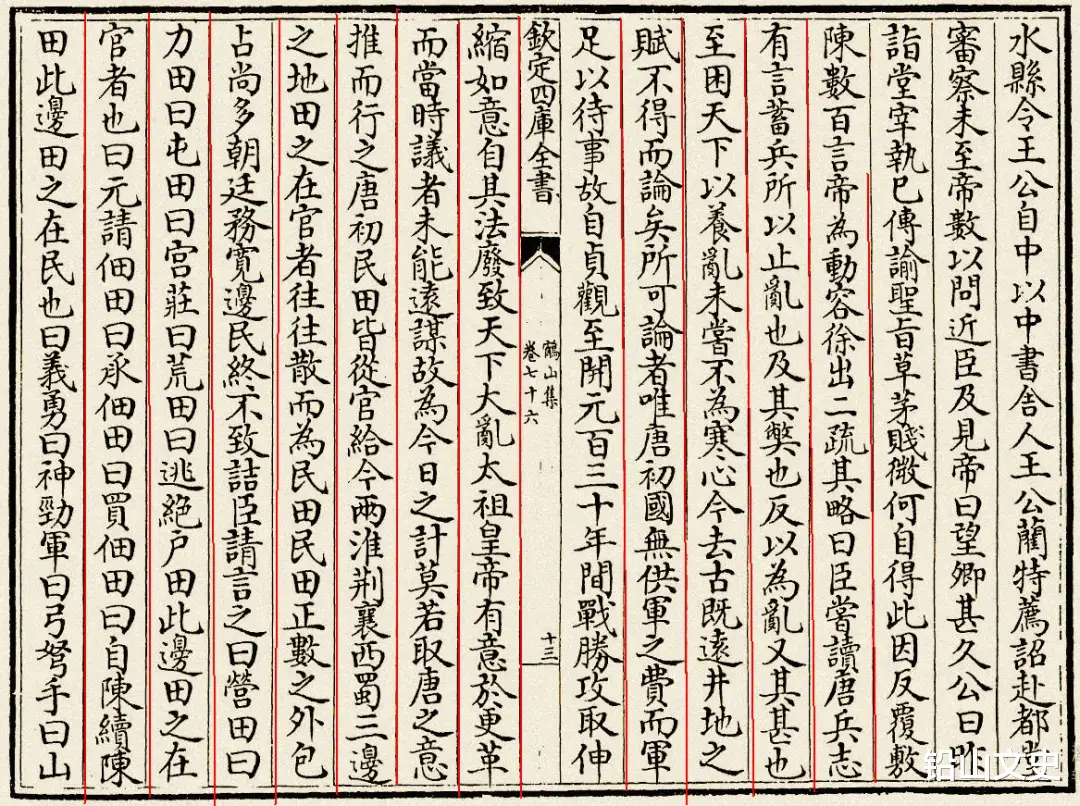 水縣令王公自中以中書舍人王公藺特薦詔赴都堂
審察未至帝數以問近臣及見帝曰望卿甚久公曰昨
詣堂宰執已傳諭聖旨草茅賤微何自得此因反覆敷
陳數百言帝為動容徐出二疏其略曰臣嘗讀唐兵志
有言蓄兵所以止亂也及其弊也反以為亂又其甚也
至困天下以養亂未嘗不為寒心今去古既遠井地之
賦不得而論矣所可論者唯唐初國無供軍之費而軍
足以待事故自貞觀至開元百三十年間戰勝攻取伸
欽定四庫全書
鶴山集
卷七十六
十三
縮如意自其法廢致天下大亂太祖皇帝有意於更革
而當時議者未能遠謀故為今日之計莫若取唐之意
推而行之唐初民田皆從官給今兩淮荆襄西蜀三邊
之地田之在官者往往散而為民田民田正數之外包
占尚多朝廷務寛邊民終不致詰臣請言之曰營田曰
力田曰屯田曰官莊曰荒田曰逃絶户田此邊田之在
官者也曰元請佃田曰承佃田曰買佃田曰自陳續陳
田此邊田之在民也曰義勇曰神勁軍曰弓弩手曰山
铅山文史